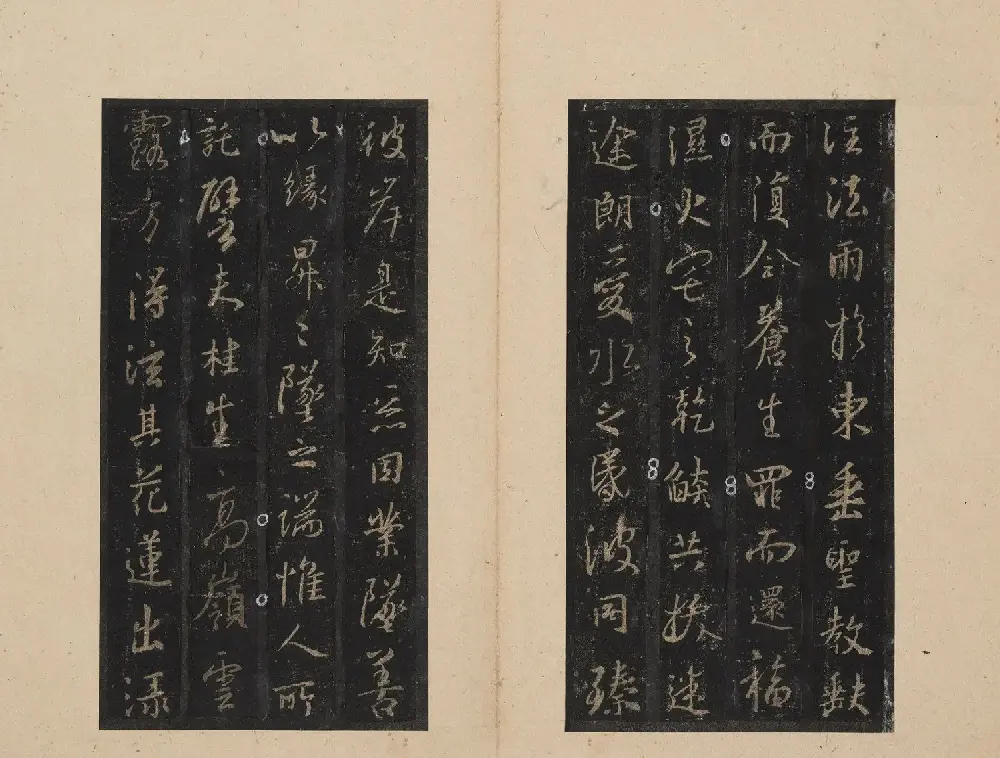 注法雨於東垂聖教缺
而復全蒼生罪而還福
濕火宅之乾燄共拔迷
途朗愛水之昏波同臻
彼岸是知惡因業墜善
以緣昇〻墜之端惟人所
託譬夫桂生高嶺雲
露方得泫其花蓮出淥